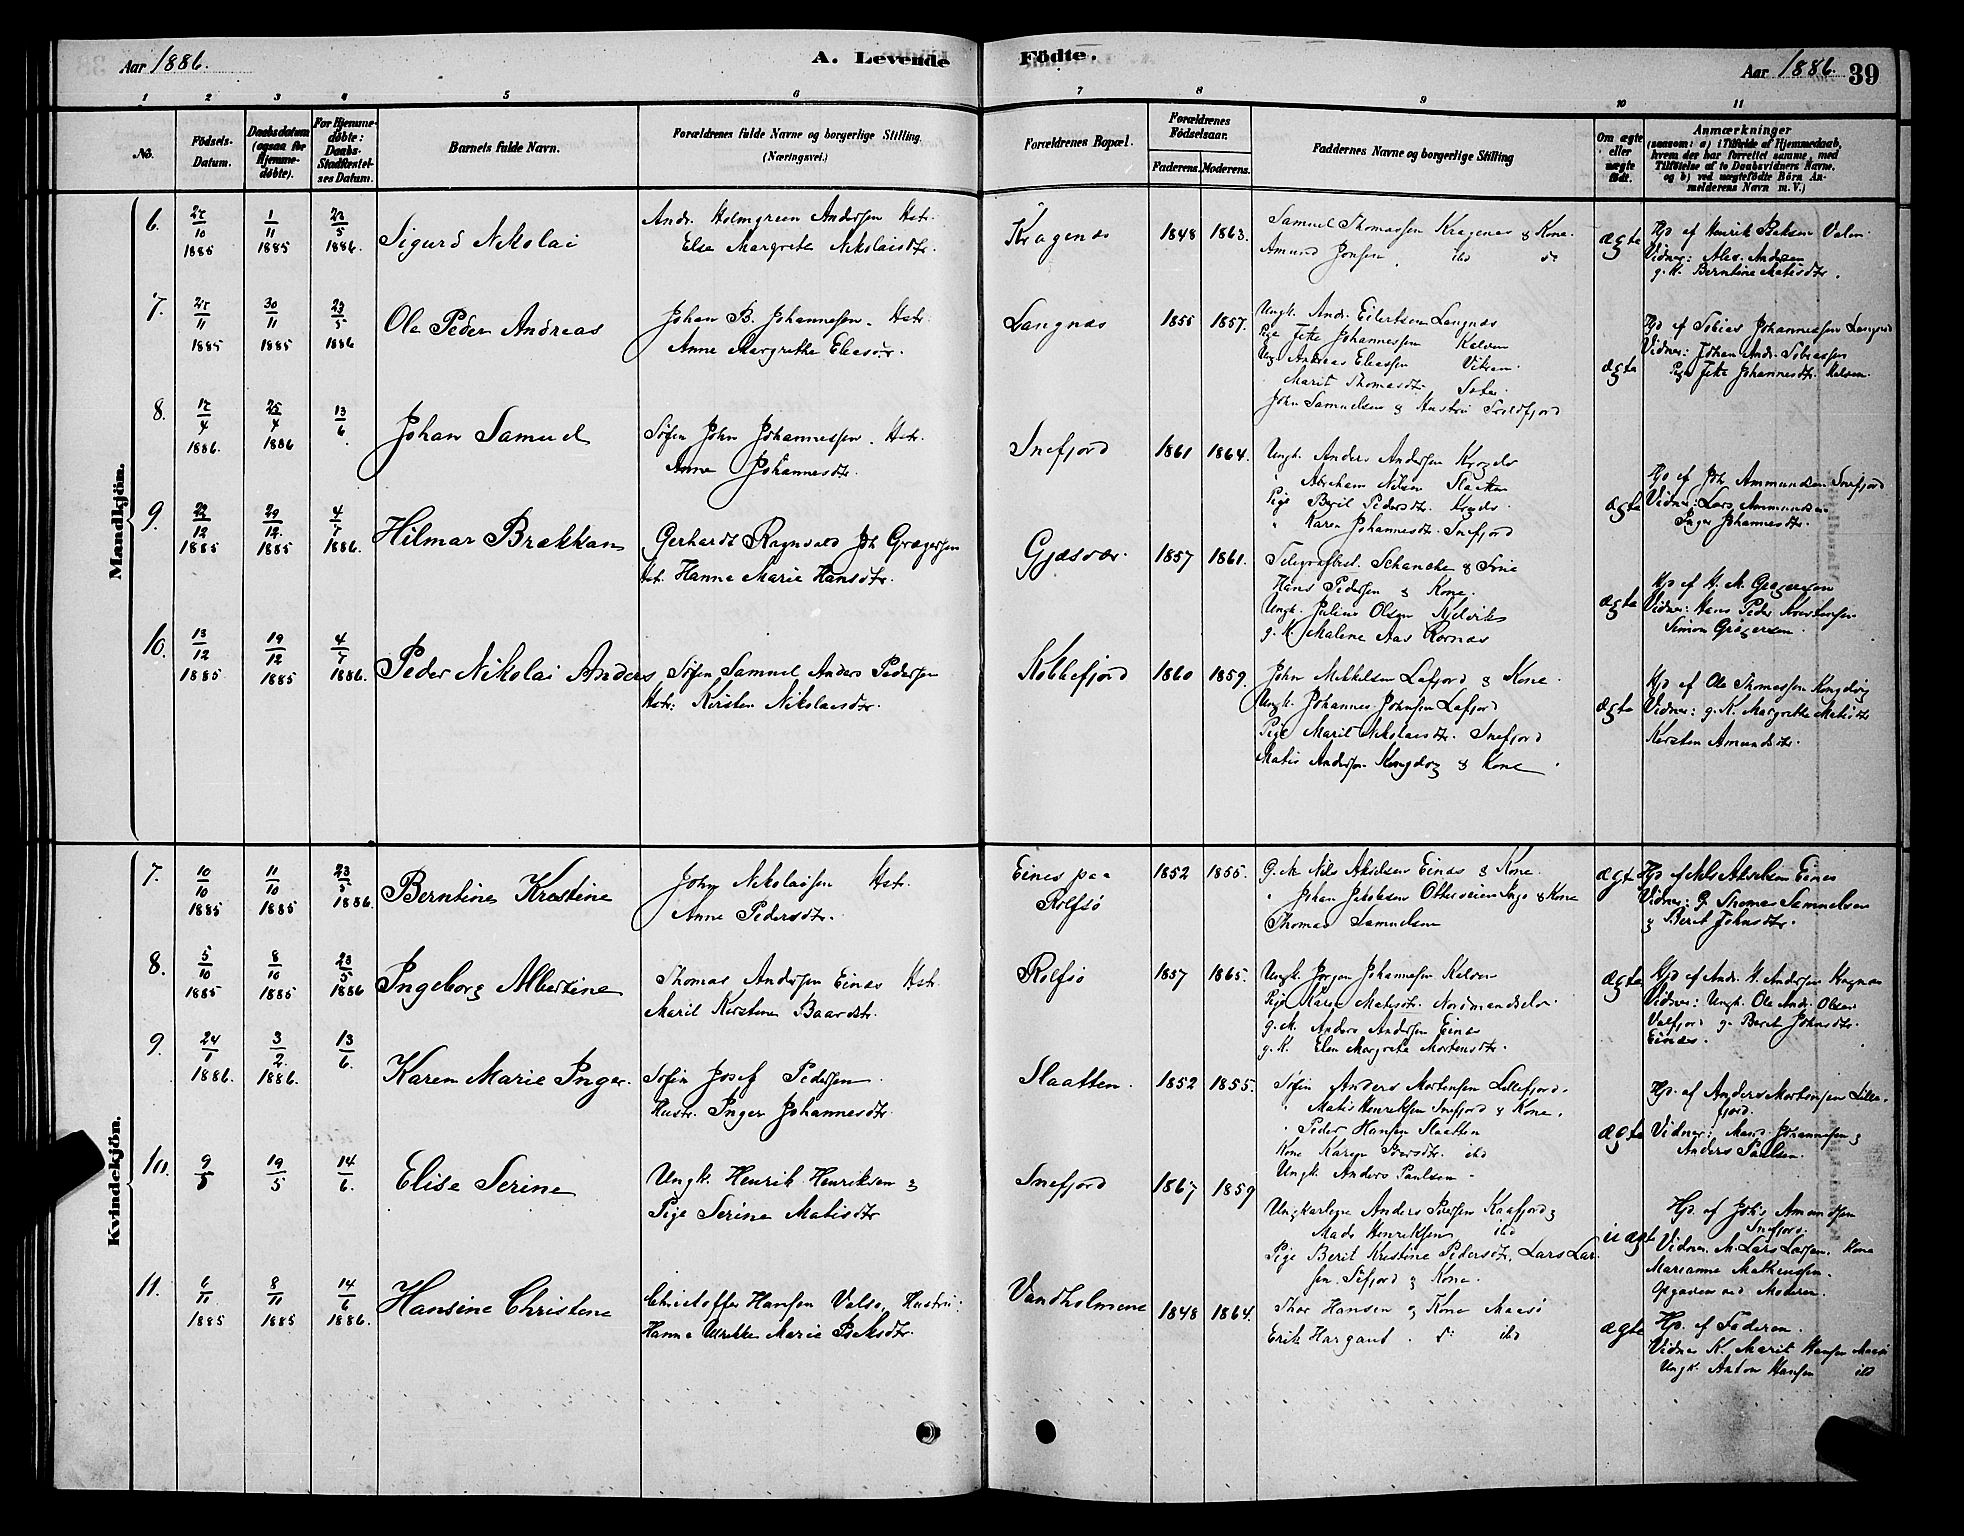 Aar 1886.
A. Levende Fødte.
Aar 1886. 39
1 2 3 4 5 6 7 8 9 10 11
No.
Fødsels-Datum.
Daabsdatum (ogsaa for Hjemmedøbte).
For Hjemmedøbte: Daabs-Stadfæstelses Datum.
Barnets fulde Navn.
Forældrenes fulde Navne og borgerlige Stilling. (Næringsvei.)
Forældrenes Bopæl.
Forældrenes Fødselsaar.
Faderens. Moderens.
Faddernes Navne og borgerlige Stilling
Om ægte eller uægte født.
Anmærkninger
(saasom: a) i Tilfælde af Hjemmedaab, hvem der har forrettet samme, med Tilføielse af to Daabsvidners Navne, og b) ved uægtefødte Børn Anmelderens Navn m. V.)
Mandkjön.
6. 10 1885 1/11 1885 5 1886. Sigurd Nikolai
Andr. Holmgreen Andersen Hstr.
Else Margrete Nikolaisdtr.
Kragenæs 1848 1863.
Samuel Thomassen Kragenæs & Kone.
Amund Jonsen ibd do
ægte
Hjd af Henrik Valen
Vidner: Alex. Andersen
g. K. Berntine Matisdtr.
7. 11 1885 30/11 1885 23/5 1886 Ole Peder Andreas
Johan B. Johannesen. Hstr.
Anne Margrethe Eleasdtr.
Langnæs 1855 1857.
Ungk. Andr. Eilertsen Langnæs
Pige Jette Johannessen Kelven
Ung. Andreas Eleassen
Marit Thomasdtr.
John Samuelsen & Hustru
ægte
Hjd af Tobias Johannessen Langnæs
Vidner: Johan Andr. Tobiassen
Pige Jette Johannesdtr. Kelven.
8. 4 1886. 25/4 1886 13/6 Johan Samuel
Søfin John Johannessen. Hstr.
Anne Johannesdtr.
Snefjord 1861 1864.
Ungk. Anders Andersen
Abraham Nilsen Slaatten
Pige Berit Pedersdtr.
" Karen Johannesdtr. Snefjord
ægte
Hjd af Joh. Ammundsen Snefjord
Vidner: Lars Ammundsen
Inger Johannesdtr.
9. 22/12 1885 29/12 1885 4/7 1886. Hilmar Brækkan
Gerhardt Ragnvald Joh Grøgersen
Hst. Hanna Marie Hansdtr.
Gjæsvær. 1857 1861.
Telegrafbest. Schancke & Frue
Hans Pedersen & Kone.
Ungk. Julius Olsen Kjelvik
g. K. Malene Aas Kornæs
ægte
Hjd af H. M. Grøgersen
Vidner: Hans Peder Kristensen
Simon Grøgersen.
10. 13/12 1885. 19/12 1885 4/7 1886. Peder Nikolai Anders
Søfin Samuel Anders Pedersen
Hstr: Kirsten Nikolaisdtr.
Kobbefjord 1860 1859.
John Mikkelsen Lafjord & Kone.
Ungk. Johannes Johnsen Lafjord
Pige Marit Nikolaisdtr. Snefjord
Matis Andersen & Kone.
ægte
Hjd af Ole Thomassen
Vidner: g. K. Margrethe Matisdtr
Kirsten Amundsdtr.
Kvindekjön.
7. 10/10 1885 11/10 1885 23/5 1886. Berntine Kristine
John Nikolaisen Hstr.
Anne Pedersdtr.
Eines paa Rolfsø 1852 1855.
G. M. Nils Akselsen Einæs & Kone.
" Johan Jakobsen & Kone
Thomas Samuelsen
ægte
Hjd af Nils Akselsen Einæs
Vidner: G. Thomas Samuelsen
& Berit Johnsdtr.
8. 5/10 1885 8/10 1885 23/5 1886 Ingeborg Albertine
Thomas Andersen Einæs Hstr.
Marit Kirstine Baardsdtr.
Rolfsø 1857 1865.
Ungk. Jørgen Johannesen Kelven
Pige Karen Matisdtr. Nordmandselv.
g. M. Anders Andersen Einæs
g. K. Elen Margrethe Mortensdtr.
ægte
Hjd af Andr. H. Andersen
Vidner: Ungk. Ole Andr. Olsen
g. Berit Johnsdtr.
Einæs.
9. 24/1 1886. 3/2 1886. 13/6 Karen Marie Inger.
Søfin Josef Pedersen
Hustr. Inger Johannesdtr.
Slaatten. 1852 1855.
Søfin Anders Mortensen Lillefjord.
" Matis Henriksen Snefjord & Kone.
" Peder Hansen Slaatten
Kone Karen ibd
Ungk. Anders Paulsen
ægte
Hjd. af Anders Mortensen Lillefjord.
Vidner: Johannesen &
Anders Paulsen.
10. 9/5 19/5 14/6. Elise Serine
Ungk. Henrik Henriksen &
Pige Serine Matisdtr
Snefjord 1867 1859
Ungkarlene Anders Kaafjord &
Mads Henriksen ibd
Pige Berit Kristine Pedersdtr. Lars Larsen. & Kone.
uægte
Hjd. af Johs Amundsen
Snefjord.
Vidner. M. Lars Larsen. Kone
Marianne
Opgaven ved Moderen.
11. 6/11 1885 8/11 1885 14/6 1886. Hansine Christene
Christoffer Hansen Hustru:
Hanna Ulrikke Marie
Vandholmene 1848 1864.
Thor Hansen & Kone Maasø
Erik Hargaut. do ibd
ægte
Hjd. af Faderen.
Vidner K. Marit Hansen Maasø
Ungk. Anton Hansen ibd